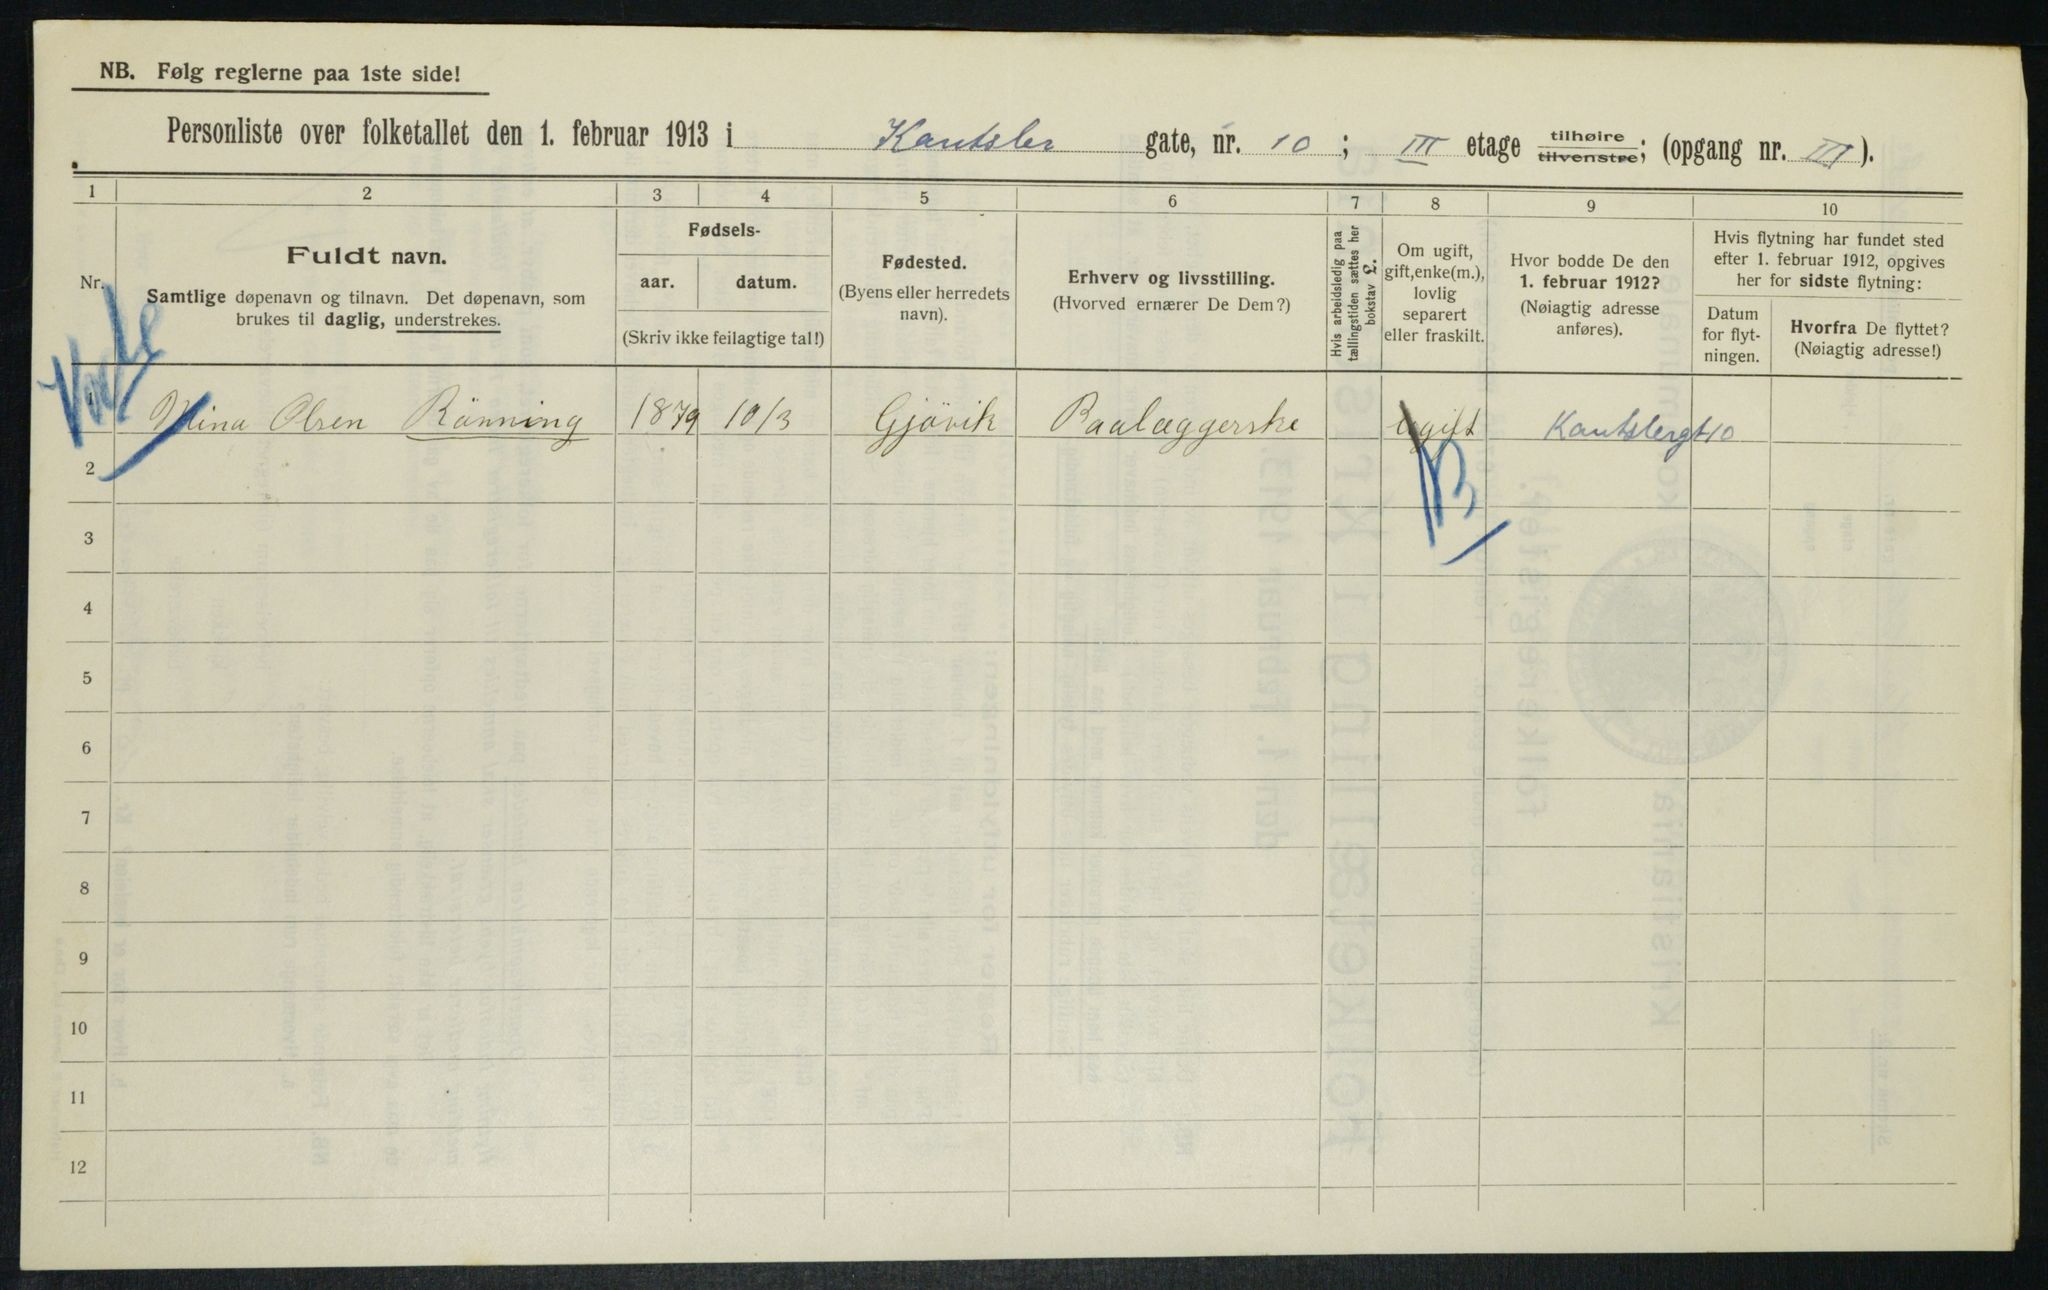 NB. Følg reglerne paa 1ste side!
Personliste over folketallet den 1. februar 1913 i Kantsler gate, nr. 10; III etage tilhøire tilvenstre; (opgang nr. III).
1 2 3 4 5 6 7 8 9 10
Nr.
Fuldt navn.
Samtlige døpenavn og tilnavn. Det døpenavn, som
brukes til daglig, understrekes.
Fødsels-
aar. datum.
(Skriv ikke feilagtige tal!)
Fødested.
(Byens eller herredets
navn).
Erhverv og livsstilling.
(Hvorved ernærer De Dem?)
Hvis arbeidsledig paa
tællingstiden sættes her
bokstav L.
Om ugift,
gift, enke(m.),
lovlig
separert
eller fraskilt.
Hvor bodde De den
1. februar 1912?
(Nøiagtig adresse
anføres).
Hvis flytning har fundet sted
efter 1. februar 1912, opgives
her for sidste flytning:
Datum
for flyt-
ningen.
Hvorfra De flyttet?
(Nøiagtig adresse!)
1 Mina Olsen Rönning 1879 10/3 Gjövik Baalæggerske ugift Kantslergt 10
2
3
4
5
6
7
8
9
10
11
12